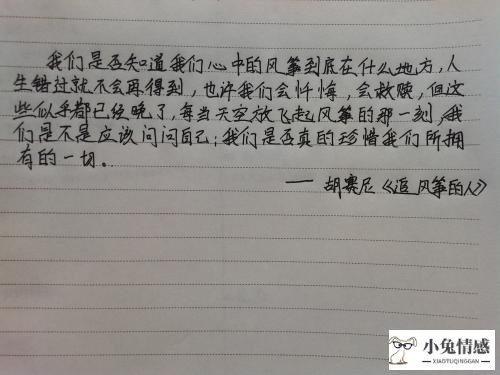 我们是否知道我们心中的风筝到底在什么地方，人
生错过就不会再得到，也许我们会忏悔，会救赎，但这
些似乎都已经晚了，每当天空放飞起风筝的那一刻，我
们是不是应该问问自己；我们是否真的珍惜我们所拥
有的一切。
—— 胡赛尼《追风筝的人》
小兔情感
XIAOTUQINGGAN